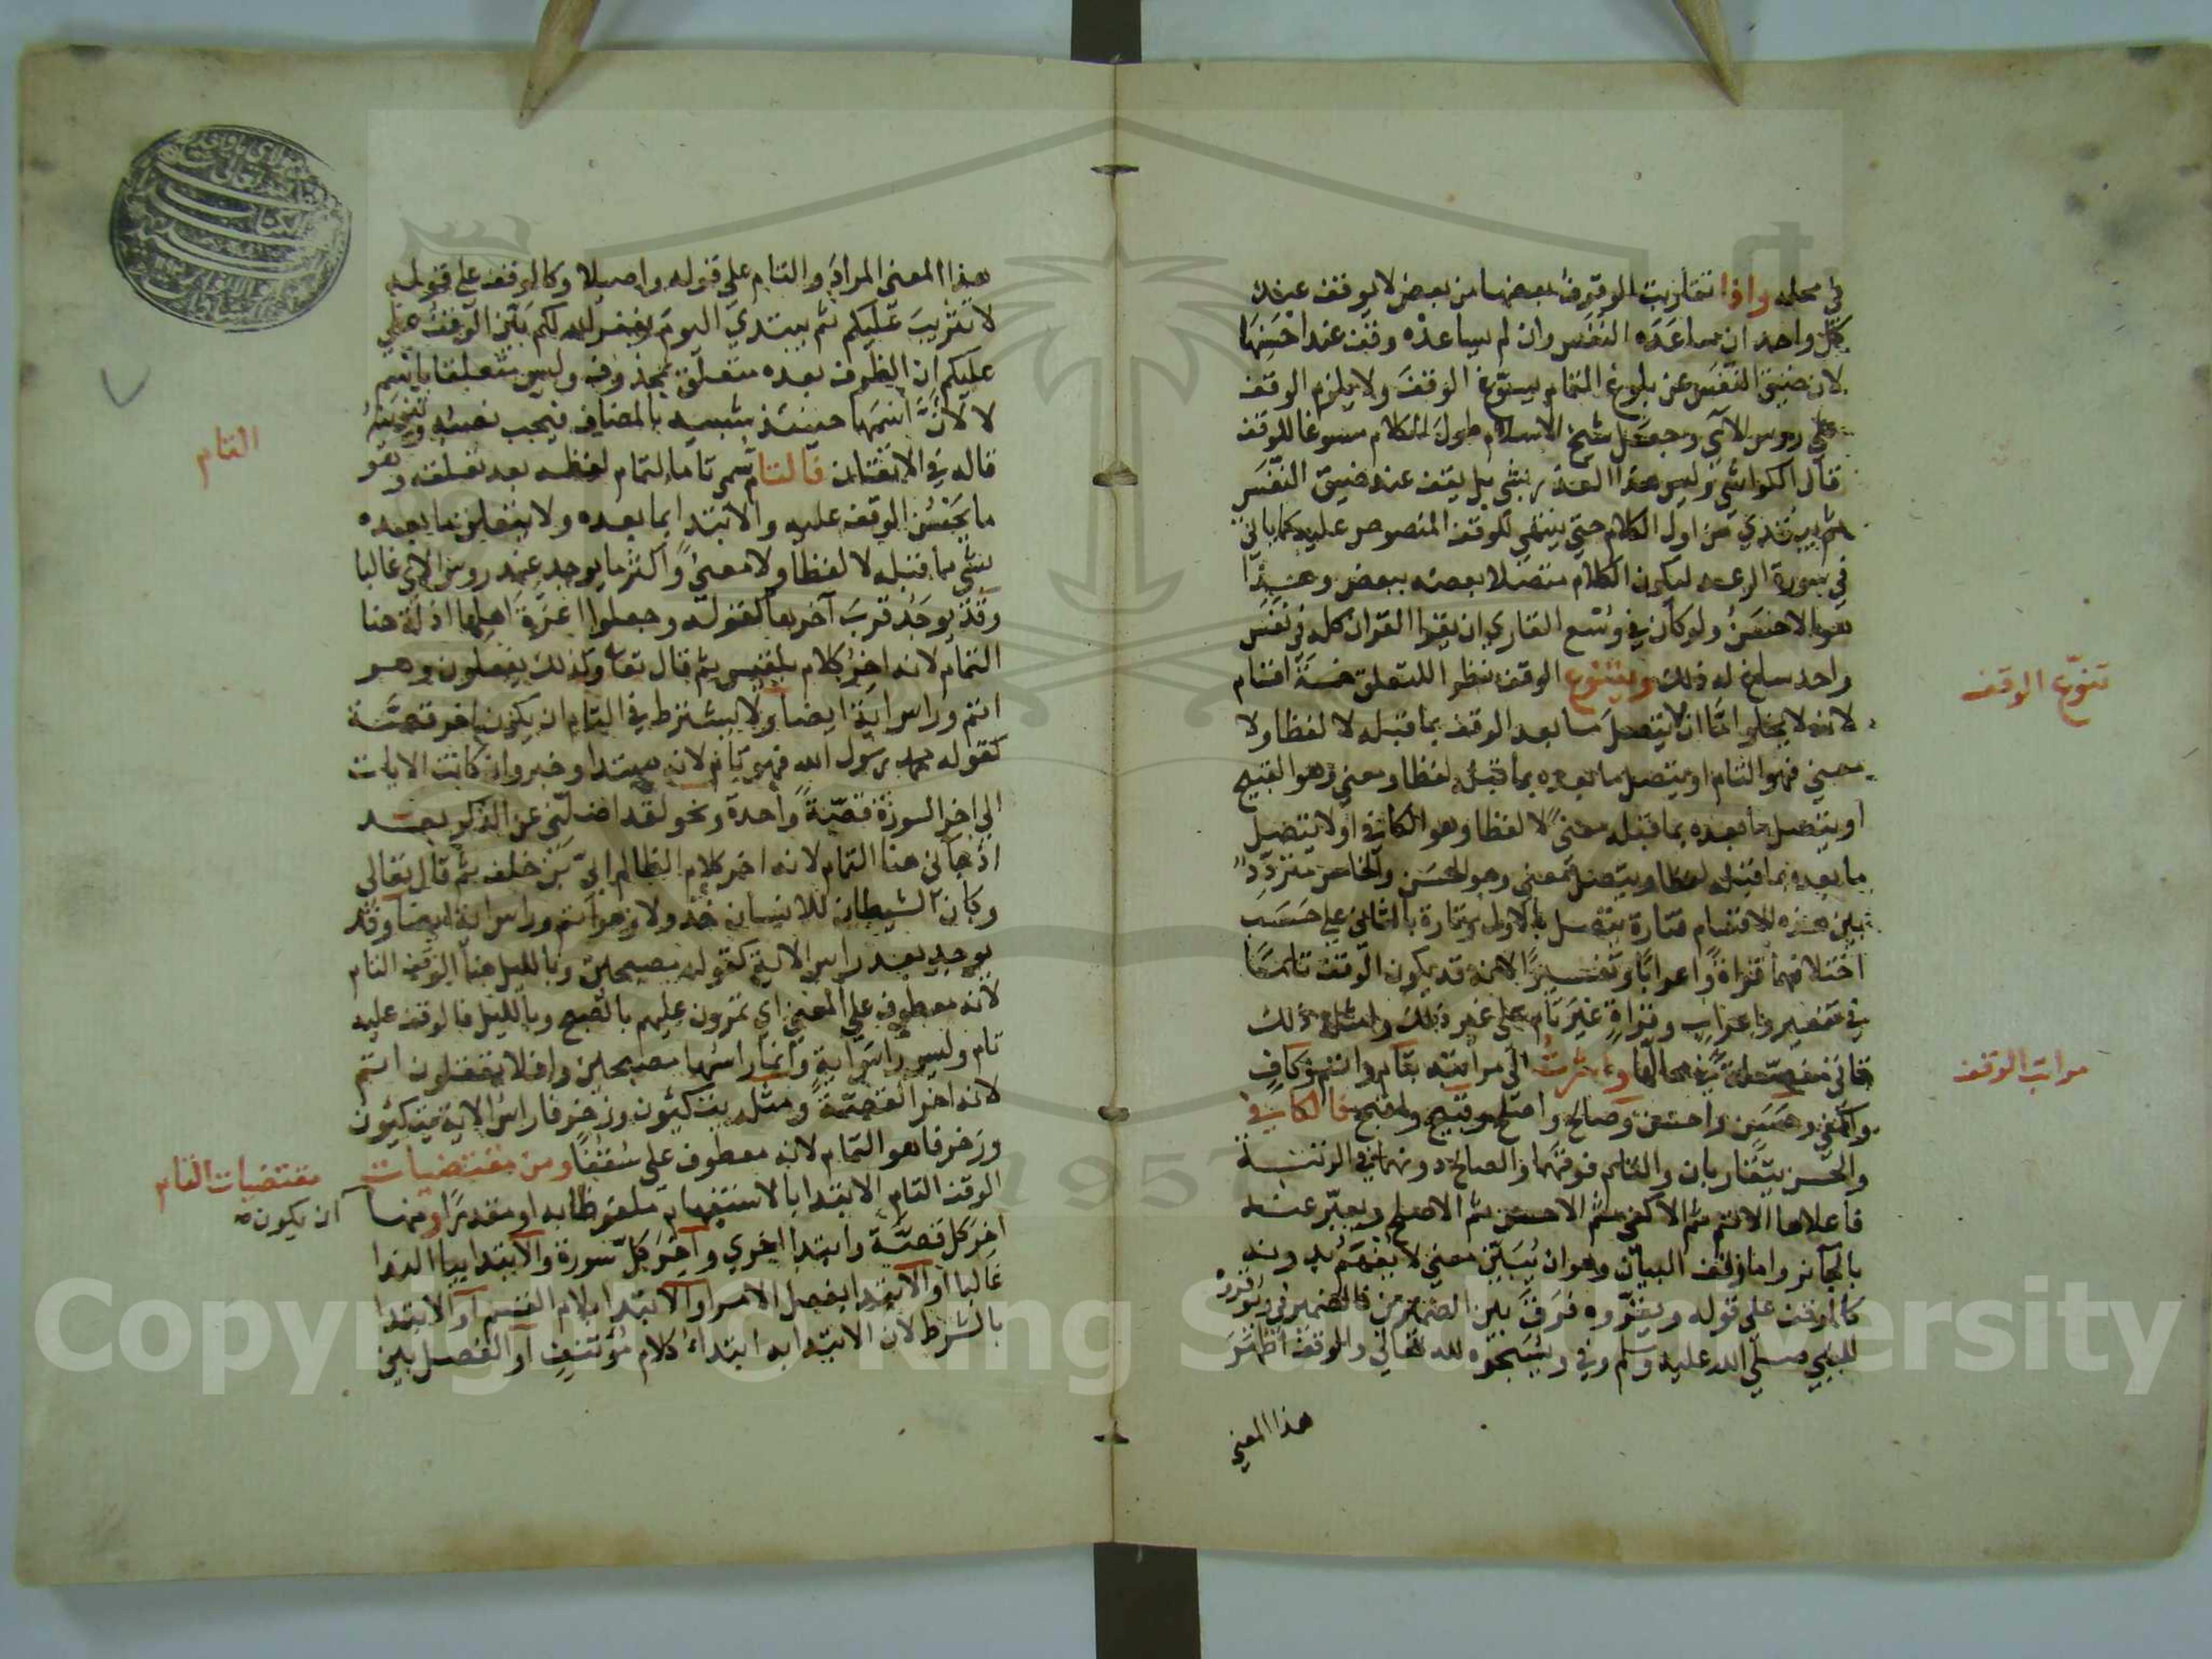 في محله واذا تقاربت الوقوف بعضها من بعض لا يوقف عند
كل واحد ان ساعده النفس وان لم يساعده وقف عند احسنها
لان ضيق النفس عن بلوغ التمام يسوغ الوقف ولا يلزم الوقف
على روس الآي وجعل شيخ الاسلام طول الكلام مسوغا للوقف
قال الكواشي وليس هذا العذر بشي بل يقف عند ضيق النفس
ثم يبتدي من اول الكلام حتى ينتهي للوقف المنصوص عليه كما ياتي
في سورة الرعد ليكون الكلام متصلا بعضه ببعض وهذا
هو الاحسن ولو كان في وسع القاري ان يقرا القران كله في نفس
واحد ساغ له ذلك ويتنوع الوقف نظرا للتعلق خمسة اقسام
لانه لا يخلو اما ان لا يتصل ما بعد الوقف بما قبله لا لفظا ولا
معنى فهو التام او يتصل ما بعده بما قبله لفظا ومعنى وهو القبيح
او يتصل ما بعده بما قبله معنى لا لفظا وهو الكافي او لا يتصل
ما بعده بما قبله لفظا ويتصل معنى وهو الحسن والخامس متردد
بين هذه الاقسام فتارة يتصل بالاول وتارة بالثاني على حسب
اختلافهما قراة واعرابا وتفسيرا لانه قد يكون الوقف تاما
في تفسير واعراب وقراة غير تام على غير ذلك وامثلة ذلك
تاتي مفصلة في محالها واشرت الى مراتبه بتام واتم وكاف
واكفى وحسن واحسن وصالح واصلح وقبيح واقبح فالكافي
والحسن يتقاربان والتام فوقهما والصالح دونهما في الرتبة
فاعلاها الاتم ثم الاكفى ثم الاحسن ثم الاصلح ويعبر عنه
بالجائز واما وقف البيان وهو ان يبين معنى لا يفهم بدونه
كالوقف على قوله ويوقروه فرق بين الضميرين فالضمير في ويوقروه
للنبي صلى الله عليه وسلم وفي ويسبحوه لله تعالى والوقف اظهر
هذا المعنى
تنوع الوقف
مراتب الوقف
هذا المعنى المراد والتام على قوله واصيلا وكالوقف على قوله
لا تثريب عليكم ثم يبتدي اليوم يغفر الله لكم بين الوقف على
عليكم ان الظرف بعده متعلق بمحذوف وليس متعلقا باسم
لا لان اسمها حينئذ شبيه بالمضاف فيجب نصبه وتنوينه
قاله في الاتقان فالتام سمي تاما لتمام لفظه بعد تعلقه وهو
ما يحسن الوقف عليه والابتدا بما بعده ولا يتعلق ما بعده
بشي مما قبله لا لفظا ولا معنى واكثر ما يوجد عند روس الآي غالبا
وقد يوجد قرب آخرها كقوله وجعلوا اعزة اهلها اذلة هنا
التمام لانه اخر كلام بلقيس ثم قال تعالى وكذلك يفعلون وهو
اتم وراس اية ايضا ولا يشترط في التام ان يكون اخر قصة
كقوله محمد رسول الله فهو تام لانه مبتدا وخبر وان كانت الايات
الى اخر السورة قصة واحدة ونحو لقد اضلني عن الذكر بعد
اذ جاني هنا التمام لانه اخر كلام الظالم ابي بن خلف ثم قال تعالى
وكان الشيطان للانسان خذولا وهو اتم وراس اية ايضا وقد
يوجد بعد راس الاية كقوله مصبحين وبالليل هنا الوقف التام
لانه معطوف على المعنى اي تمرون عليهم بالصبح وبالليل فالوقف عليه
تام وليس راس اية وانما راسها مصبحين وافلا تعقلون اتم
لانه اخر القصة ومثله يتكئون وزخرفا راس الاية يتكئون
وزخرفا هو التمام لانه معطوف على سقفا ومن مقتضيات
الوقف التام الابتدا بالاستفهام ملفوظا به او مقدرا ومنها
اخر كل قصة وابتدا اخرى واخر كل سورة والابتدا بيا الندا
غالبا او الابتدا بفعل الامر او الابتدا بلام القسم او الابتدا
بالشرط لان الابتدا به ابتداء كلام مؤتنف او الفصل بين
التام
مقتضيات التام
ان يكون